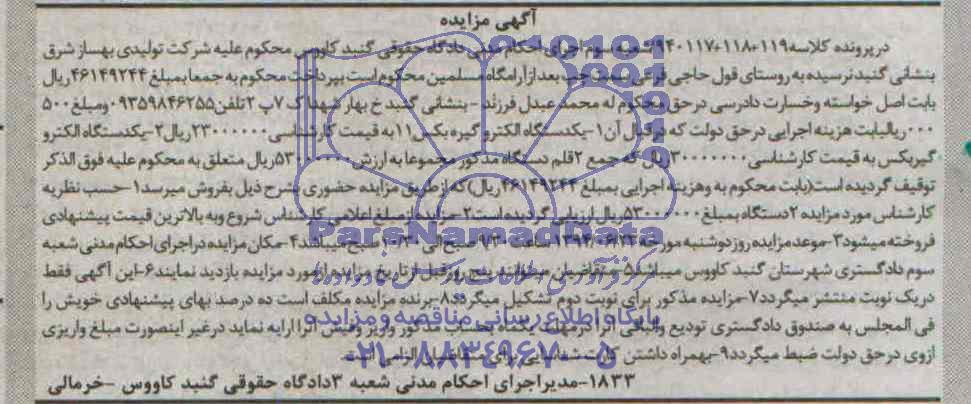 آگهی مزایده
درپرونده کلاسه ۹۴۰۱۱۷،۱۱۸،۱۱۹ شعبه سوم اجرای احکام مدنی دادگاه حقوقی گنبد کاووس محکوم علیه شرکت تولیدی بهساز شرق
بنشانی گنبد نرسیده به روستای قول حاجی فرعی سمت چپ بعد از آرامگاه مسلمین محکوم است بپرداخت محکوم به جمعا بمبلغ ۴۶۱۴۹۲۴۴ ریال
بابت اصل خواسته وخسارت دادرسی درحق محکوم له محمد عبدل فرزند - بنشانی گنبد خ بهار شهدا ک ۷پ ۲تلفن ۰۹۳۵۹۸۴۶۲۵۵ ومبلغ ۵۰۰
۰۰۰ ریالبابت هزینه اجرایی درحق دولت که درقبال آن ۱-یکدستگاه الکترو گیره بکس ۱۱به قیمت کارشناسی ۲۳۰۰۰۰۰۰ ریال ۲-یکدستگاه الکترو
گیربکس به قیمت کارشناسی ۳۰۰۰۰۰۰۰ ریال که جمع ۲قلم دستگاه مذکور مجموعا به ارزش ۵۳۰۰۰۰۰۰ ریال متعلق به محکوم علیه فوق الذکر
توقیف گردیده است(بابت محکوم به وهزینه اجرایی بمبلغ ۴۶۱۴۹۲۴۴ ریال)که ازطریق مزایده حضوری بشرح ذیل بفروش میرسد ۱-حسب نظریه
کارشناس مورد مزایده ۲دستگاه بمبلغ ۵۳۰۰۰۰۰۰ ریال ارزیابی گردیده است ۲-مزایده ازمبلغ اعلامی کارشناس شروع وبه بالاترین قیمت پیشنهادی
فروخته میشود ۳-موعد مزایده روز دوشنبه مورخه ۱۳۹۴/۰۶/۲۳ ساعت ۹/۳۰ صبح الی ۱۰/۳۰ صبح میباشد ۴-مکان مزایده دراجرای احکام مدنی شعبه
سوم دادگستری شهرستان گنبد کاووس میباشد ۵-متقاضیان میتوانند پنج روزقبل ازتاریخ مزایده ازمورد مزایده بازدید نمایند ۶-این آگهی فقط
دریک نوبت منتشر میگردد ۷-مزایده مذکور برای نوبت دوم تشکیل میگردد ۸-برنده مزایده مکلف است ده درصد بهای پیشنهادی خویش را
فی المجلس به صندوق دادگستری تودیع والباقی آنرا درمهلت یکماه بحساب مذکور واریز وفیش آنرا ارایه نماید درغیر اینصورت مبلغ واریزی
ازوی درحق دولت ضبط میگردد ۹-بهمراه داشتن کارت شناسایی برای متقاضیان الزامی است
۱۸۳۳-مدیراجرای احکام مدنی شعبه ۳دادگاه حقوقی گنبد کاووس -خرمالی
ParsNamadData
پایگاه اطلاع رسانی مناقصه و مزایده
۰۲۱-۸۸۳۴۹۶۷۰-۵